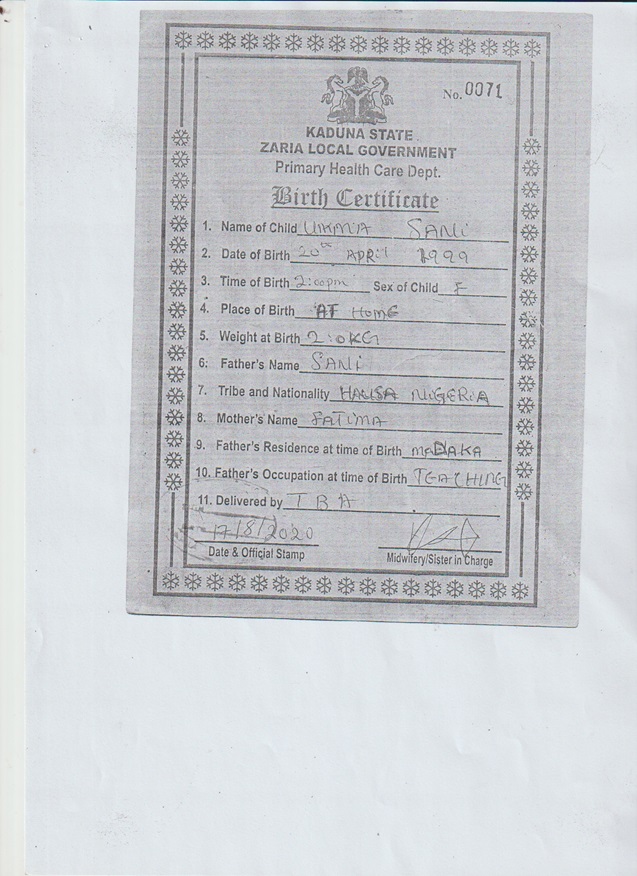 No. 0071
KADUNA STATE
ZARIA LOCAL GOVERNMENT
Primary Health Care Dept.
Birth Certificate
1. Name of Child SANi
2. Date of Birth 20th APRil 1999
3. Time of Birth 2:00pm Sex of Child F
4. Place of Birth AT HOME
5. Weight at Birth 2:0KG
6: Father's Name SANi
7. Tribe and Nationality HAUSA NiGERiA
8. Mother's Name FATIMA
9. Father's Residence at time of Birth maDAKA
10. Father's Occupation at time of Birth TEACHING
11. Delivered by TBA
17/8/2020
Date & Official Stamp
Midwifery/Sister in Charge